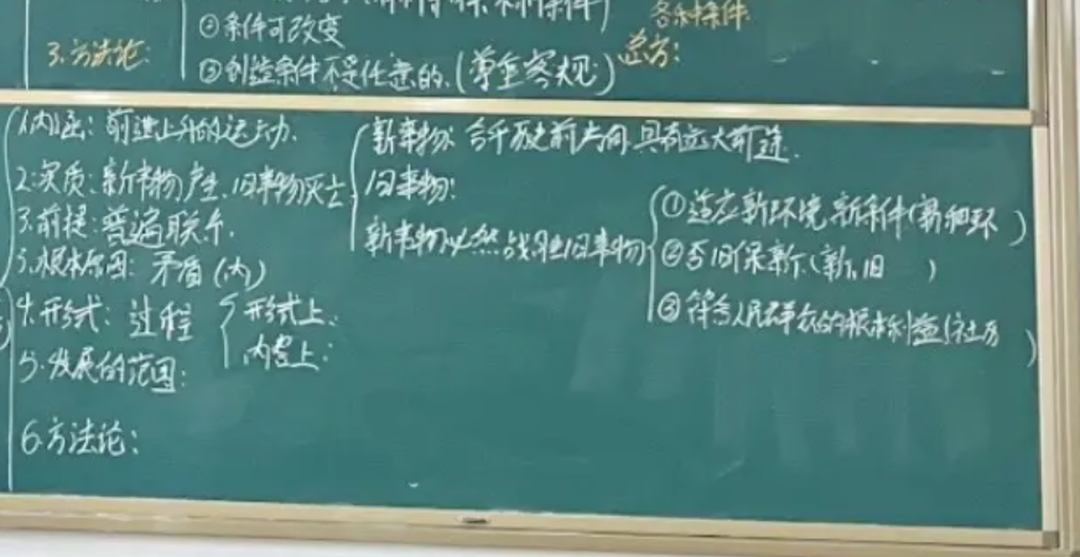 各种条件
②条件可改变
3.方法论:
③创造条件不是任意的.(尊重客观)
1.内涵:前进上升的运动.
新事物:合乎历史前进方向,具有远大前途.
2.实质:新事物产生,旧事物灭亡
旧事物:
3.前提:普遍联系.
新事物必然战胜旧事物
①适应新环境,新条件(新和环 )
②否旧保新(新、旧 )
③符合人民群众的根本利益(社历 )
5.根本原因:矛盾(内)
4.形式:过程
形式上:
内容上:
5.发展的范围:
6.方法论: